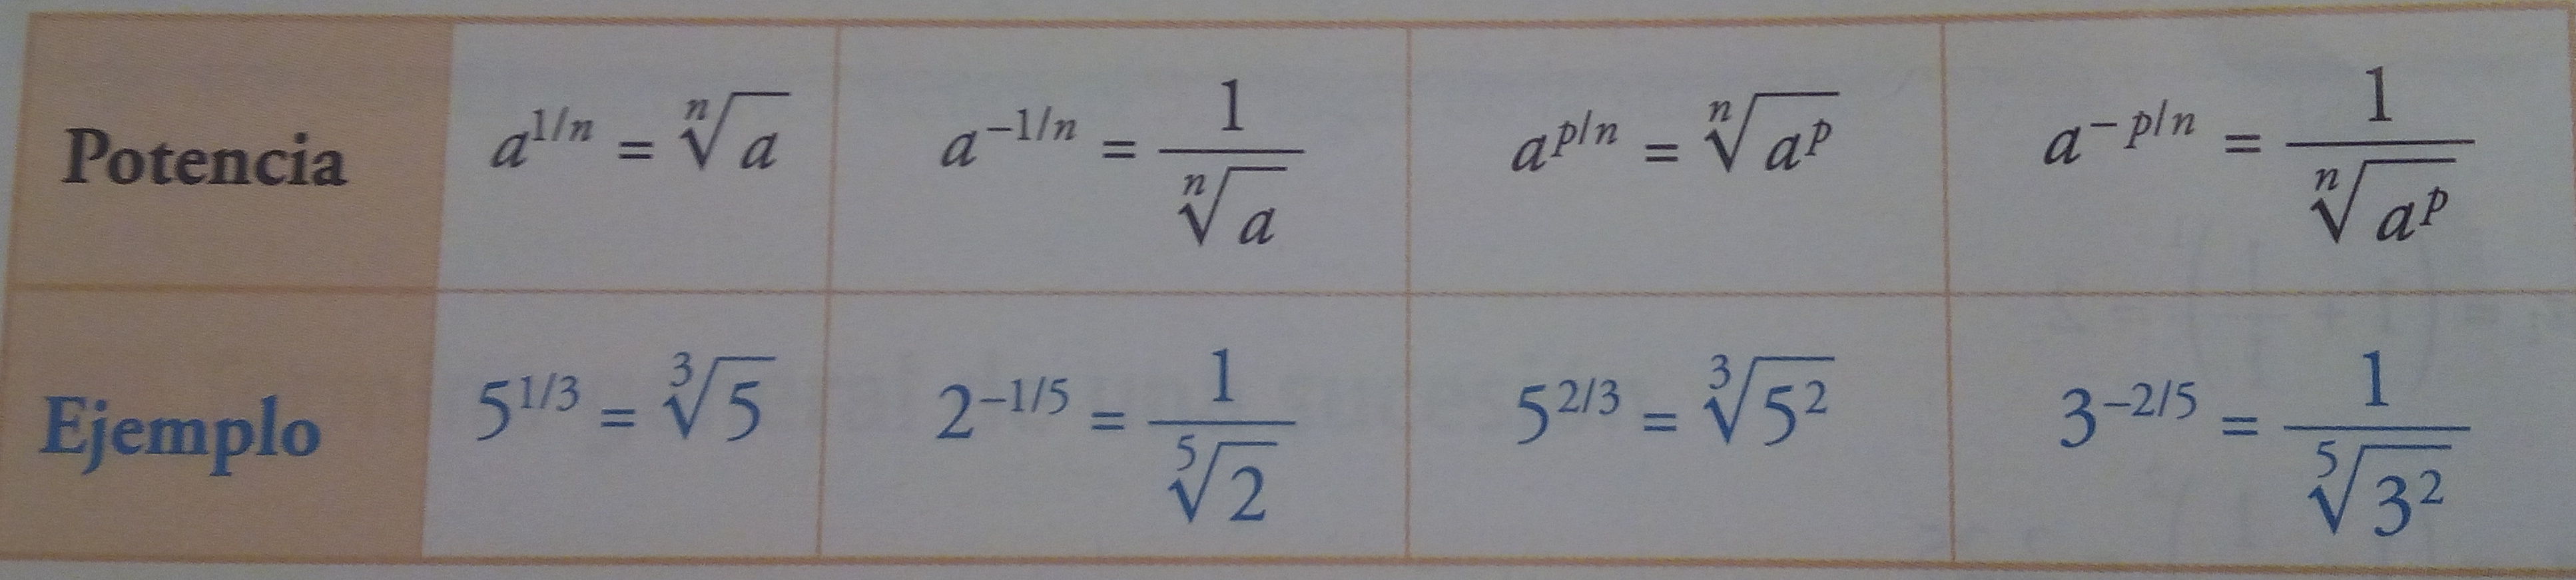 Potencia a^{1/n} = \sqrt[n]{a} a^{-1/n} = \frac{1}{\sqrt[n]{a}} a^{p/n} = \sqrt[n]{a^p} a^{-p/n} = \frac{1}{\sqrt[n]{a^p}}
Ejemplo 5^{1/3} = \sqrt[3]{5} 2^{-1/5} = \frac{1}{\sqrt[5]{2}} 5^{2/3} = \sqrt[3]{5^2} 3^{-2/5} = \frac{1}{\sqrt[5]{3^2}}